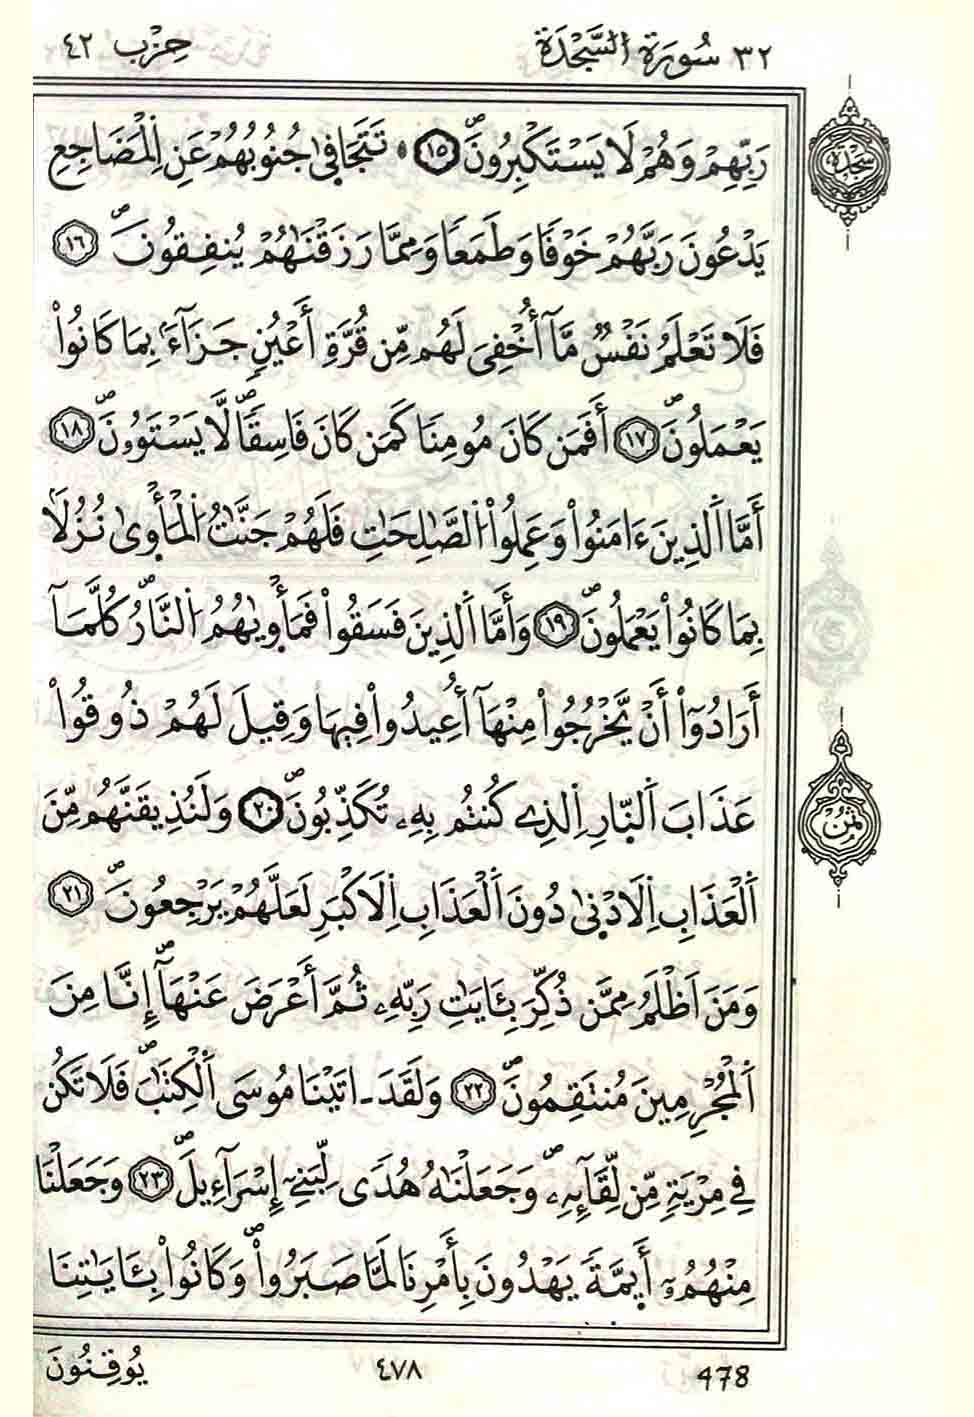 ٣٢ سُورَةُ السَّجْدَةِ
حِزْب ٤٢
رَبِّهِمْ وَهُمْ لَا يَسْتَكْبِرُونَۖ ١٥ ۞ تَتَجَافىٰ جُنُوبُهُمْ عَنِ اِ۬لْمَضَاجِعِ
سَجْدَة
يَدْعُونَ رَبَّهُمْ خَوْفاٗ وَطَمَعاٗ وَمِمَّا رَزَقْنَٰهُمْ يُنفِقُونَۖ ١٦
فَلَا تَعْلَمُ نَفْسٞ مَّآ أُخْفِيَ لَهُم مِّن قُرَّةِ أَعْيُنٖ جَزَآءَۢ بِمَا كَانُواْ
يَعْمَلُونَۖ ١٧ أَفَمَن كَانَ مُومِناٗ كَمَن كَانَ فَاسِقاٗۖ لَّا يَسْتَوُۥنَۖ ١٨
أَمَّا اَ۬لذِينَ ءَامَنُواْ وَعَمِلُواْ اُ۬لصَّٰلِحَٰتِ فَلَهُمْ جَنَّٰتُ اُ۬لْمَأْوٜىٰ نُزُلاَۢ
بِمَا كَانُواْ يَعْمَلُونَۖ ١٩ وَأَمَّا اَ۬لذِينَ فَسَقُواْ فَمَأْوٜىٰهُمُ اُ۬لنَّارُۖ كُلَّمَآ
أَرَادُوٓاْ أَنْ يَّخْرُجُواْ مِنْهَآ أُعِيدُواْ فِيهَا وَقِيلَ لَهُمْ ذُوقُواْ
عَذَابَ اَ۬لنّ۪ارِ اِ۬لذِے كُنتُم بِهِۦ تُكَذِّبُونَۖ ٢٠ وَلَنُذِيقَنَّهُم مِّنَ
ثُمُن
اَ۬لْعَذَابِ اِ۬لَادْنٜىٰ دُونَ اَ۬لْعَذَابِ اِ۬لَاكْبَرِ لَعَلَّهُمْ يَرْجِعُونَۖ ٢١
وَمَنَ اَظْلَمُ مِمَّن ذُكِّرَ بِـَٔايَٰتِ رَبِّهِۦ ثُمَّ أَعْرَضَ عَنْهَآۖ إِنَّا مِنَ
اَ۬لْمُجْرِمِينَ مُنتَقِمُونَۖ ٢٢ وَلَقَدَ ـ اتَيْنَا مُوسَى اَ۬لْكِتَٰبَۖ فَلَا تَكُن
فِے مِرْيَةٖ مِّن لِّقَآئِهِۦۖ وَجَعَلْنَٰهُ هُدىٗ لِّبَنِےٓ إِسْرَآءِيلَۖ ٢٣ وَجَعَلْنَا
مِنْهُمُۥٓ أَيِمَّةٗ يَهْدُونَ بِأَمْرِنَا لَمَّا صَبَرُواْۖ وَكَانُواْ بِـَٔايَٰتِنَا
يُوقِنُونَ
٤٧٨
478